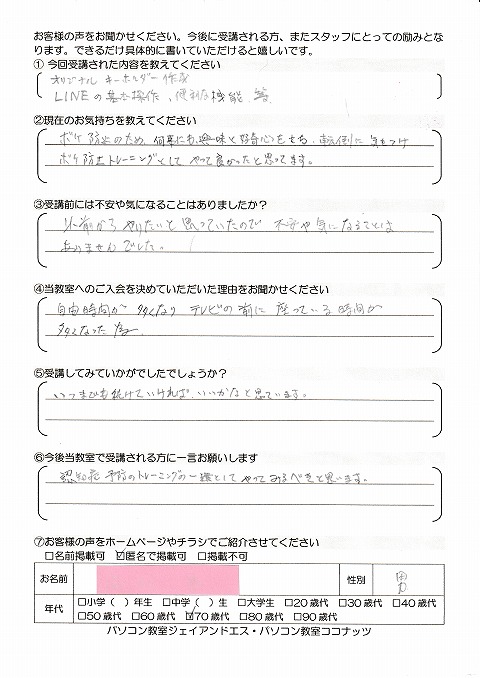 お客様の声をお聞かせください。今後に受講される方、またスタッフにとっての励みとな
ります。できるだけ具体的に書いていただけると嬉しいです。
① 今回受講された内容を教えてください
オリジナル キーホルダー作成
LINEの基本操作、便利な機能 等
②現在のお気持ちを教えてください
ボケ防止のため、何事にも興味と好奇心をもち、転倒に気をつけ
ボケ防止トレーニングとして やって良かったと思ってます。
③受講前には不安や気になることはありましたか？
以前からやりたいと思っていたので 不安や気になることは
ありませんでした。
④当教室へのご入会を決めていただいた理由をお聞かせください
自由時間が多くなり テレビの前に座っている時間が
多くなった為
⑤受講してみていかがでしたでしょうか？
いつまでも続けていければいいかなと思ています。
⑥今後当教室で受講される方に一言お願いします
認知症予防のトレーニングの一環としてやってみるべきと思います。
⑦お客様の声をホームページやチラシでご紹介させてください
□名前掲載可 ☑匿名で掲載可 □掲載不可
お名前 性別 男
年代 □小学（ ）年生 □中学（ ）生 □大学生 □20歳代 □30歳代 □40歳代
□50歳代 □60歳代 ☑70歳代 □80歳代 □90歳代
パソコン教室ジェイアンドエス・パソコン教室ココナッツ